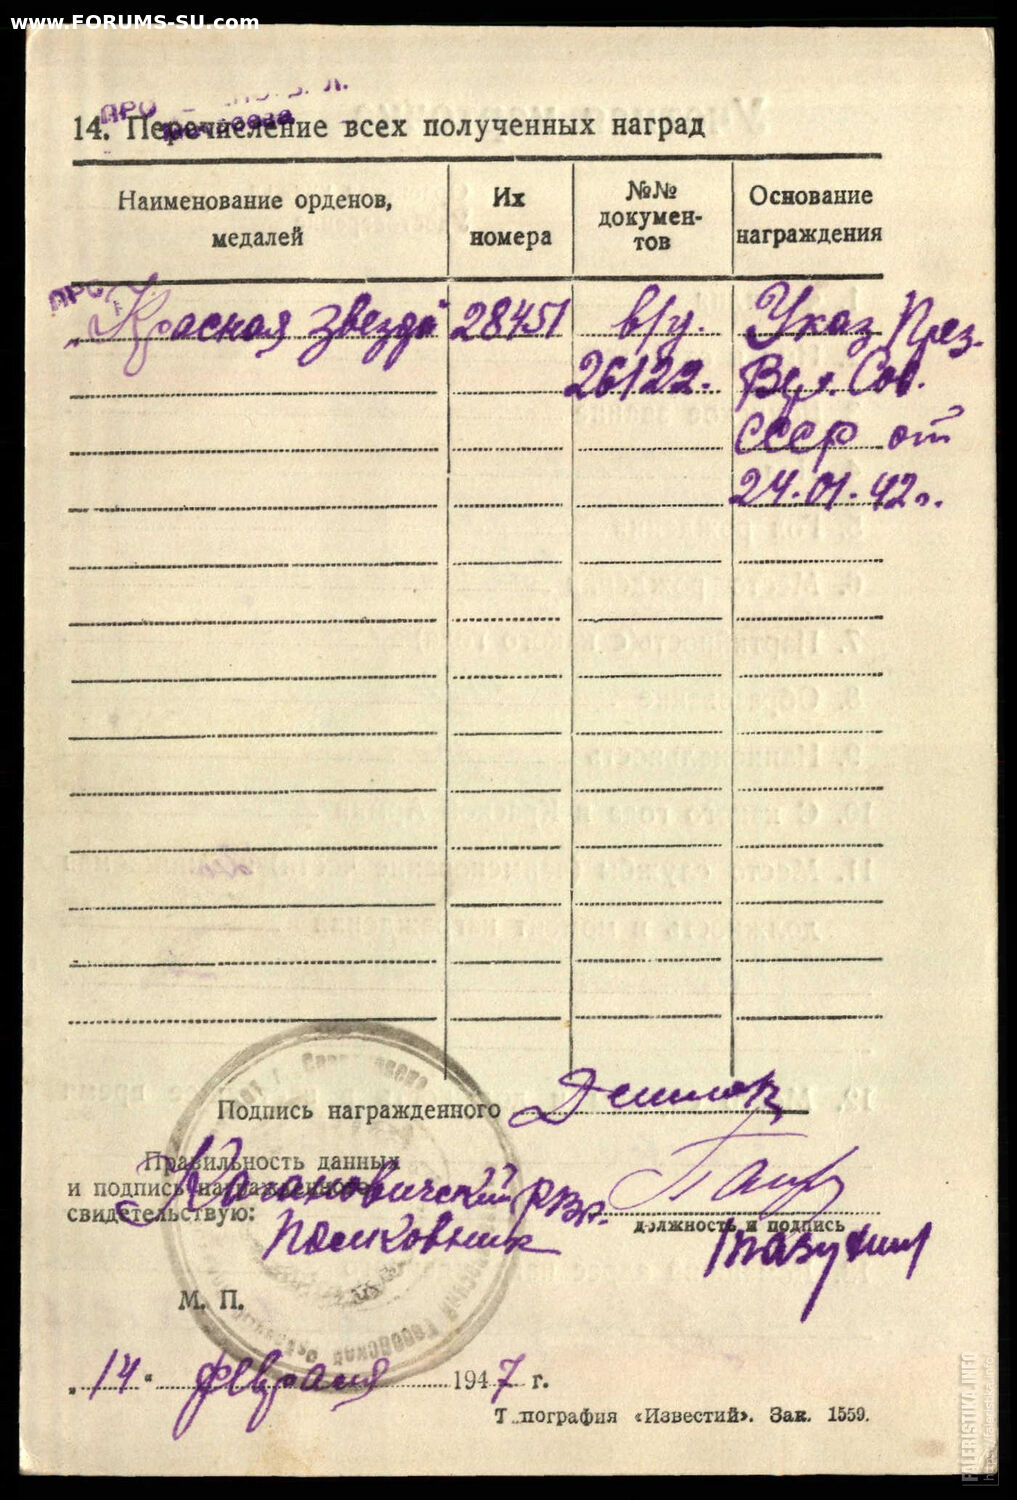 www.FORUMS-SU.com
14. Перечисление всех полученных наград
Наименование орденов, медалей
Их номера
№№ докумен-тов
Основание награждения
„Красная Звезда" 28451 в/у. Указ През.
26122. Вер. Сов.
СССР от
24.01.42г.
Подпись награжденного
Правильность данных
и подпись награжденного
свидетельствую:
Полковник
должность и подпись
М. П.
„14" февраля 1947 г.
Типография «Известий». Зак. 1559.
FALERISTIKA.INFO